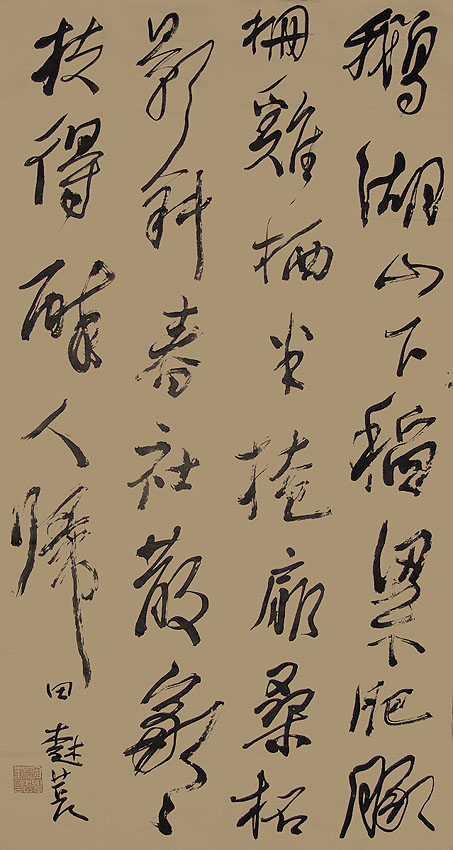 鵝湖山下稻粱肥豚
柵雞栖半掩扉桑柘
影斜春社散家々
扶得醉人歸
田